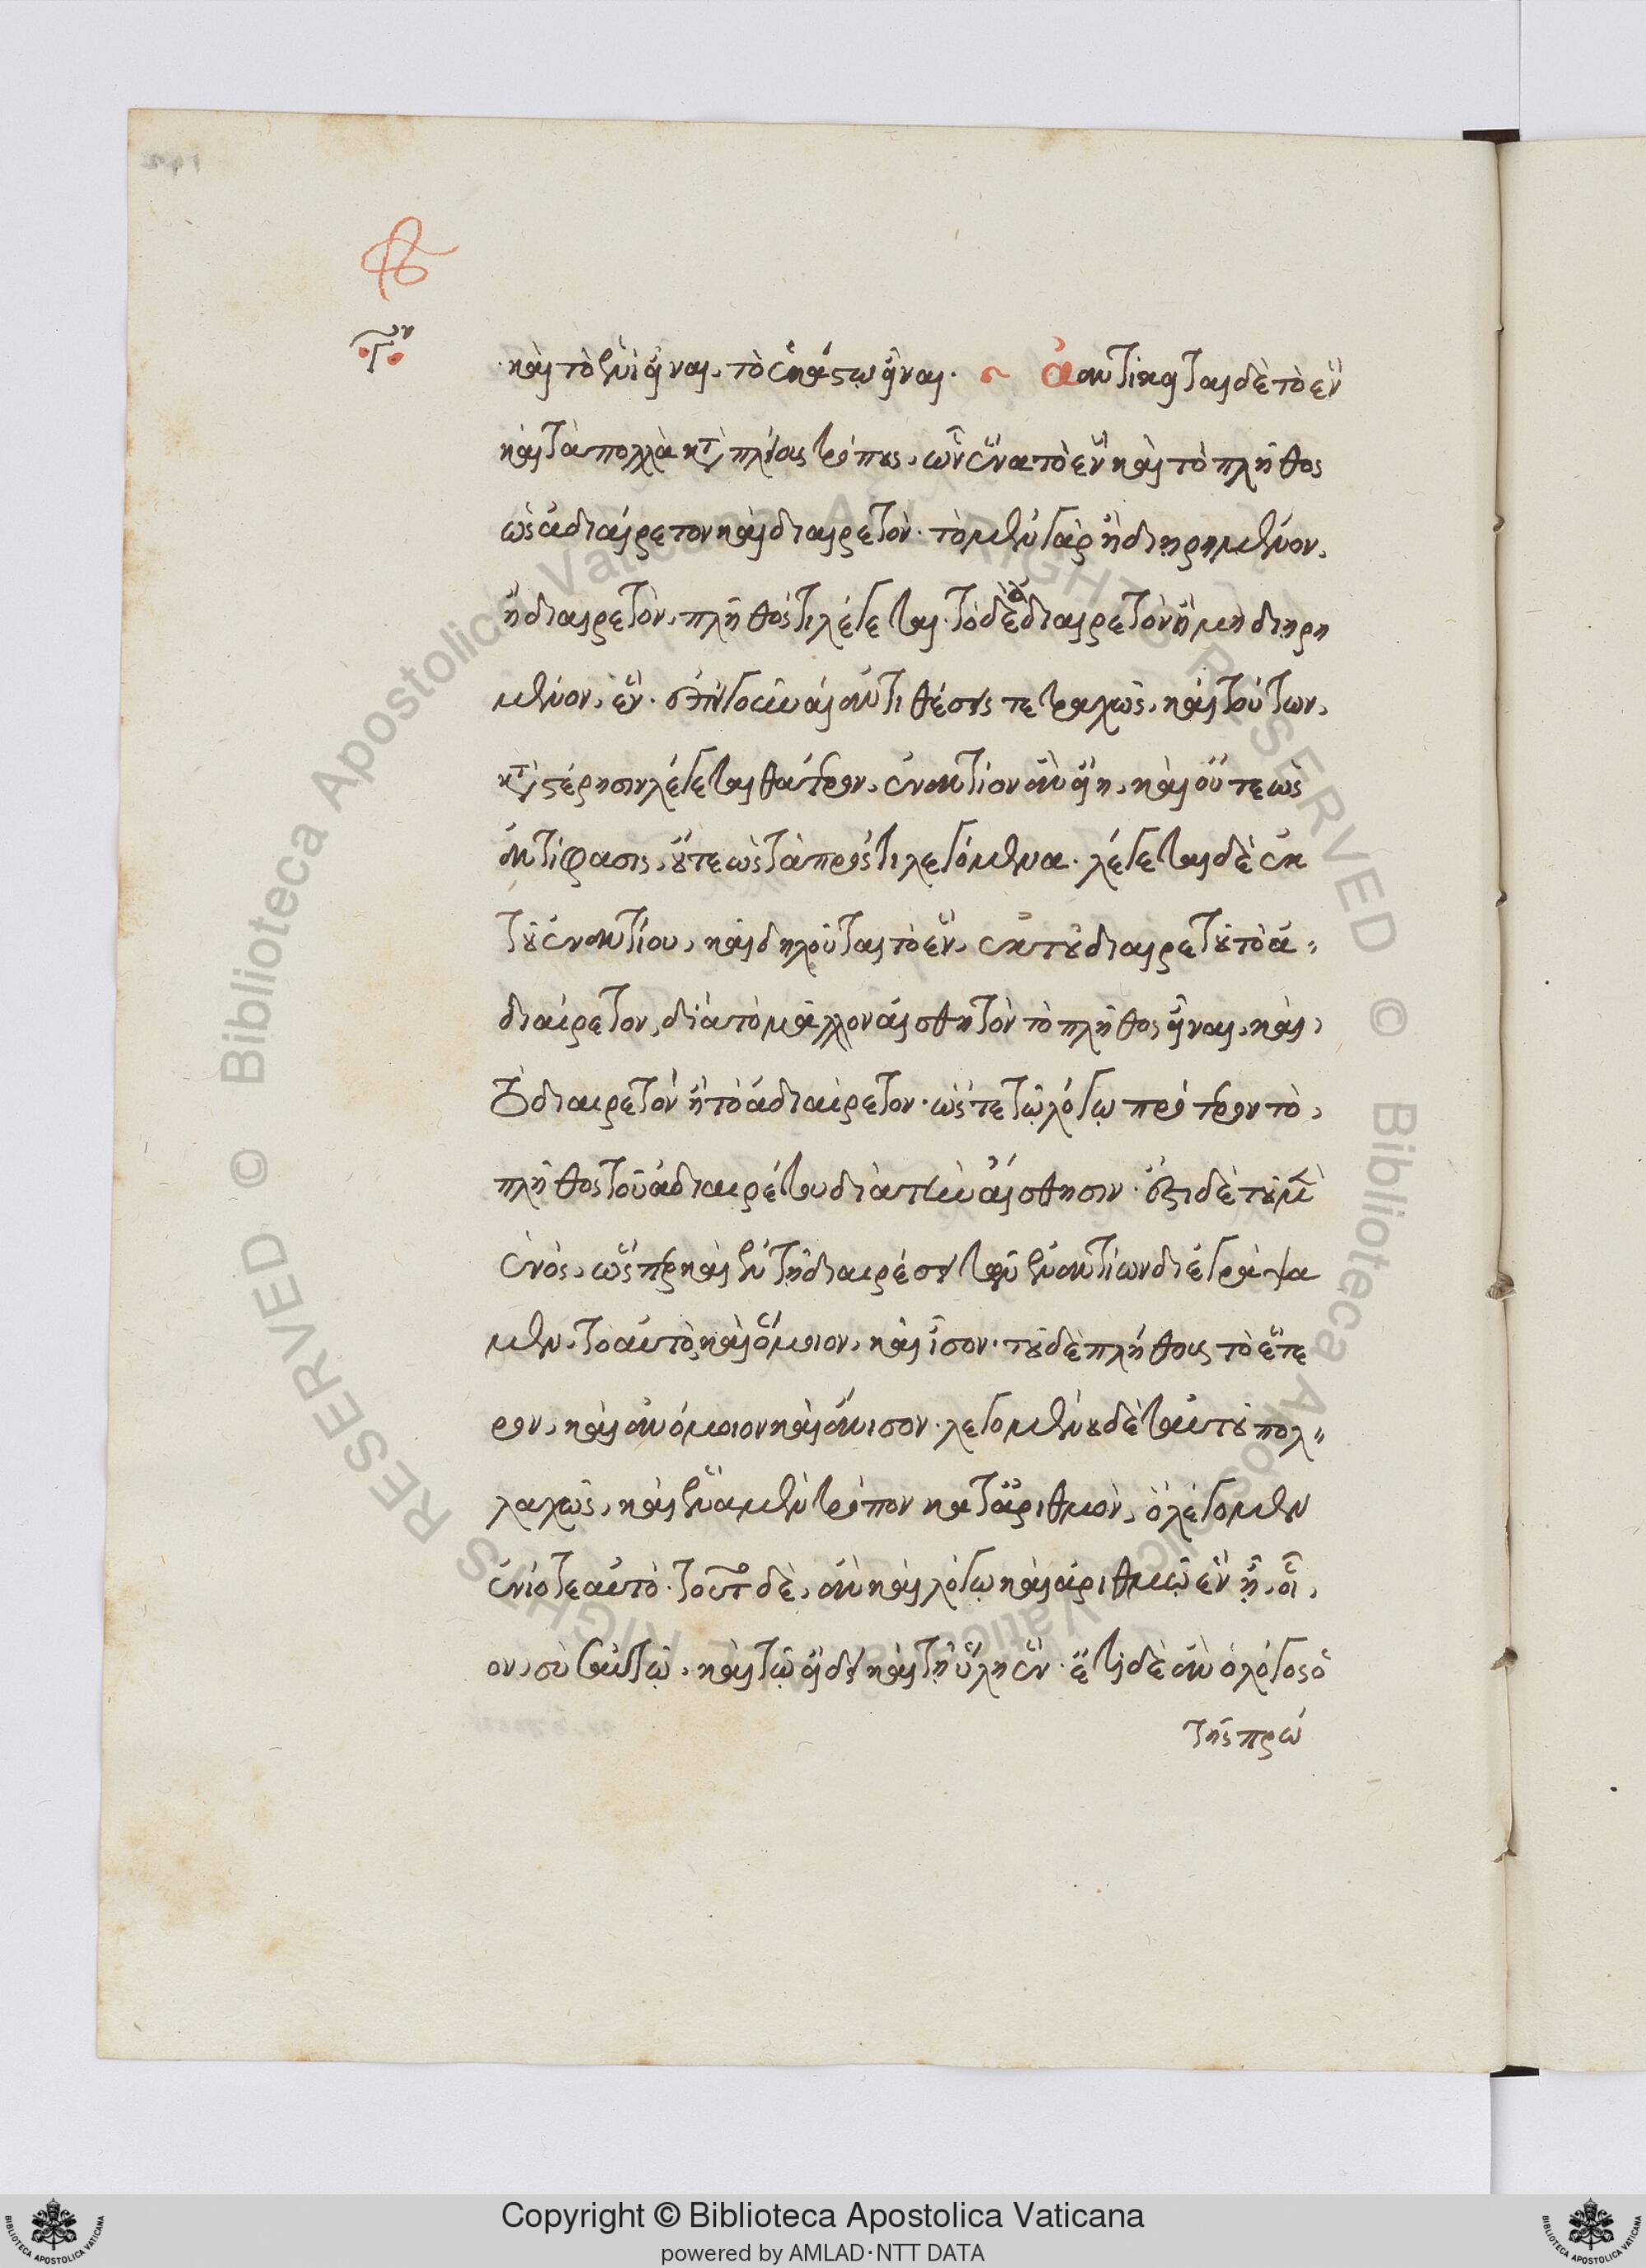 γον
καὶ τὸ ἑνὶ εἶναι, τὸ ἑκάστῳ εἶναι. ἀντίκειται δὲ τὸ ἓν
καὶ τὰ πολλὰ κατὰ πλείους τρόπους, ὧν ἕνα τὸ ἓν καὶ τὸ πλῆθος
ὡς ἀδιαίρετον καὶ διαιρετόν. τὸ μὲν γὰρ ἢ διῃρημένον,
ἢ διαιρετὸν, πλῆθός τι λέγεται. τὸ δὲ ἀδιαιρετὸν ἢ μὴ διῃρη
μένον, ἕν. ἐπεὶ οὖν αἱ ἀντιθέσεις τετραχῶς, καὶ τούτων,
κατὰ στέρησιν λέγεται θάτερον, ἐναντίον ἂν εἴη, καὶ οὔτε ὡς
ἀντίφασις, οὔτε ὡς τὰ πρός τι λεγόμενα. λέγεται δὲ ἐκ
τοῦ ἐναντίου, καὶ δηλοῦται τὸ ἓν, ἐκ τοῦ διαιρετοῦ τὸ ἀ-
διαίρετον, διὰ τὸ μᾶλλον αἰσθητὸν τὸ πλῆθος εἶναι, καὶ,
τὸ διαιρετόν ἢ τὸ ἀδιαίρετον. ὥστε τῷ λόγῳ πρότερον τὸ,
πλῆθος τοῦ ἀδιαιρέτου διὰ τὴν αἴσθησιν. ἔστι δὲ τοῦ μὲν
ἑνός, ὥσπερ καὶ ἐν τῇ διαιρέσει τῶν ἐναντίων διεγράψα
μεν, τὸ αὐτὸ καὶ ὅμοιον, καὶ ἴσον. τοῦ δὲ πλήθους τὸ ἕτε
ρον, καὶ ἀνόμοιον καὶ ἄνισον. λεγομένου δὲ ταὐτοῦ πολ-
λαχῶς, καὶ ἕνα μὲν τρόπον κατ' ἀριθμὸν, ὃ λέγομεν
ἐνίοτε αὐτό. τοῦτο δὲ, ἂν καὶ λόγῳ καὶ ἀριθμῷ ἓν ᾖ, οἷ,
ον, σὺ ταὐτῷ, καὶ τῷ εἴδει καὶ τῇ ὕλῃ ἕν. ἔτι δὲ ἂν ὁ λόγος ὁ
τῆς πρώ